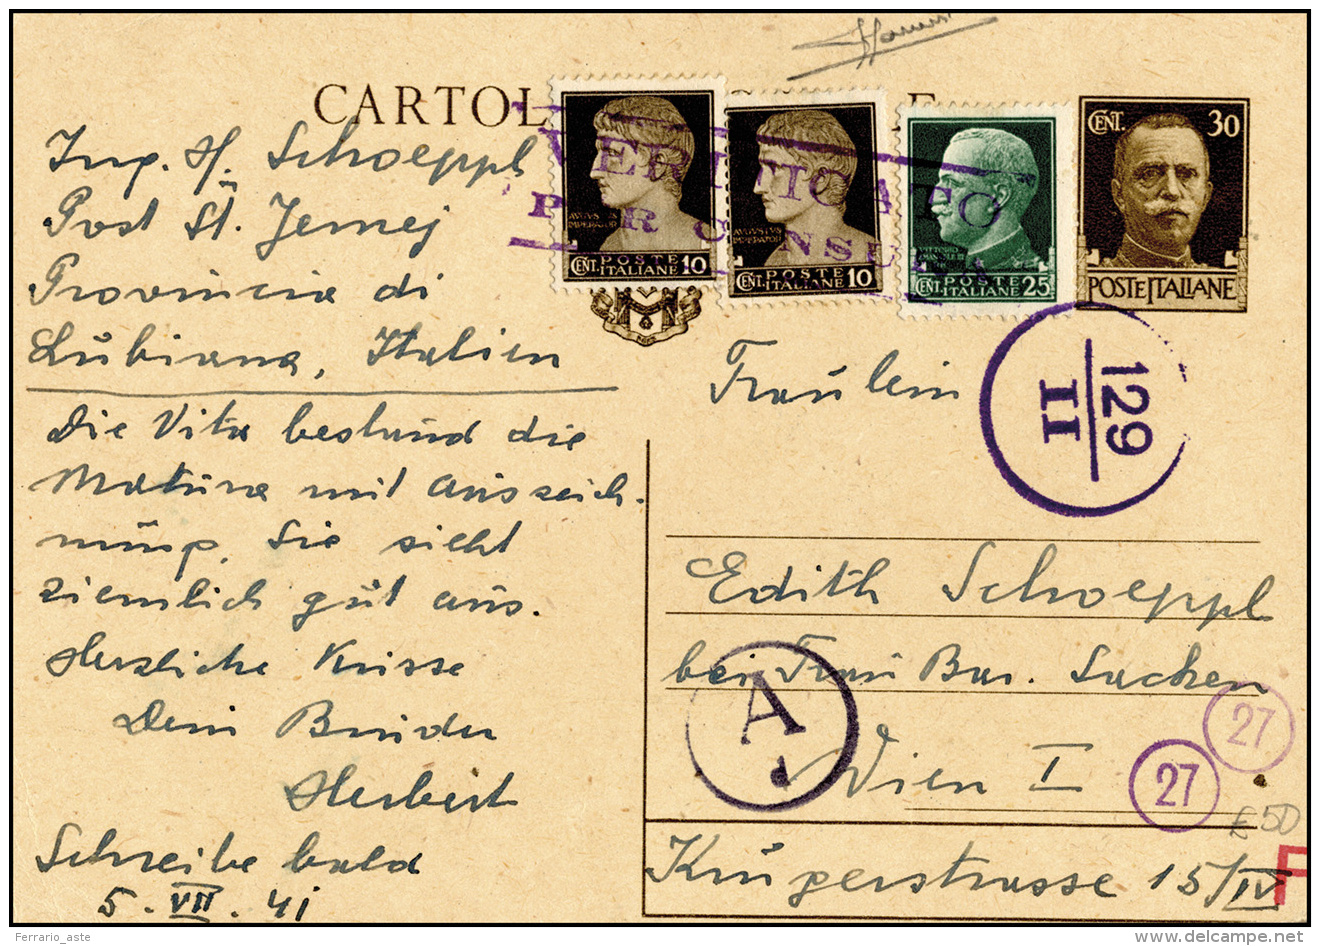 CARTOL
Ing. H. Schoeppl
Post St. Jernej
Provincia di
Lubiana, Italien
Die Vita bestund die
Matura mit Auszeich-
nung. Sie sieht
ziemlich gut aus.
Herzliche Küsse
Dein Bruder
Herbert
Schreibe bald
5. VII. 41
VERIFICATO
PER CENSURA
AVGVSTVS
IMPERATOR
CENT. POSTE ITALIANE 10
AVGVSTVS
IMPERATOR
CENT. POSTE ITALIANE 10
VITTORIO
EMANUELE III
CENT. POSTE ITALIANE 25
CENT. 30
POSTE ITALIANE
129
II
Fräulein
Edith Schoeppl
bei Frau Bar. Sacken
Wien I
Krügerstrasse 15/IV
A
d
27
27
£50
F
Ferrario_aste
www.delcampe.net